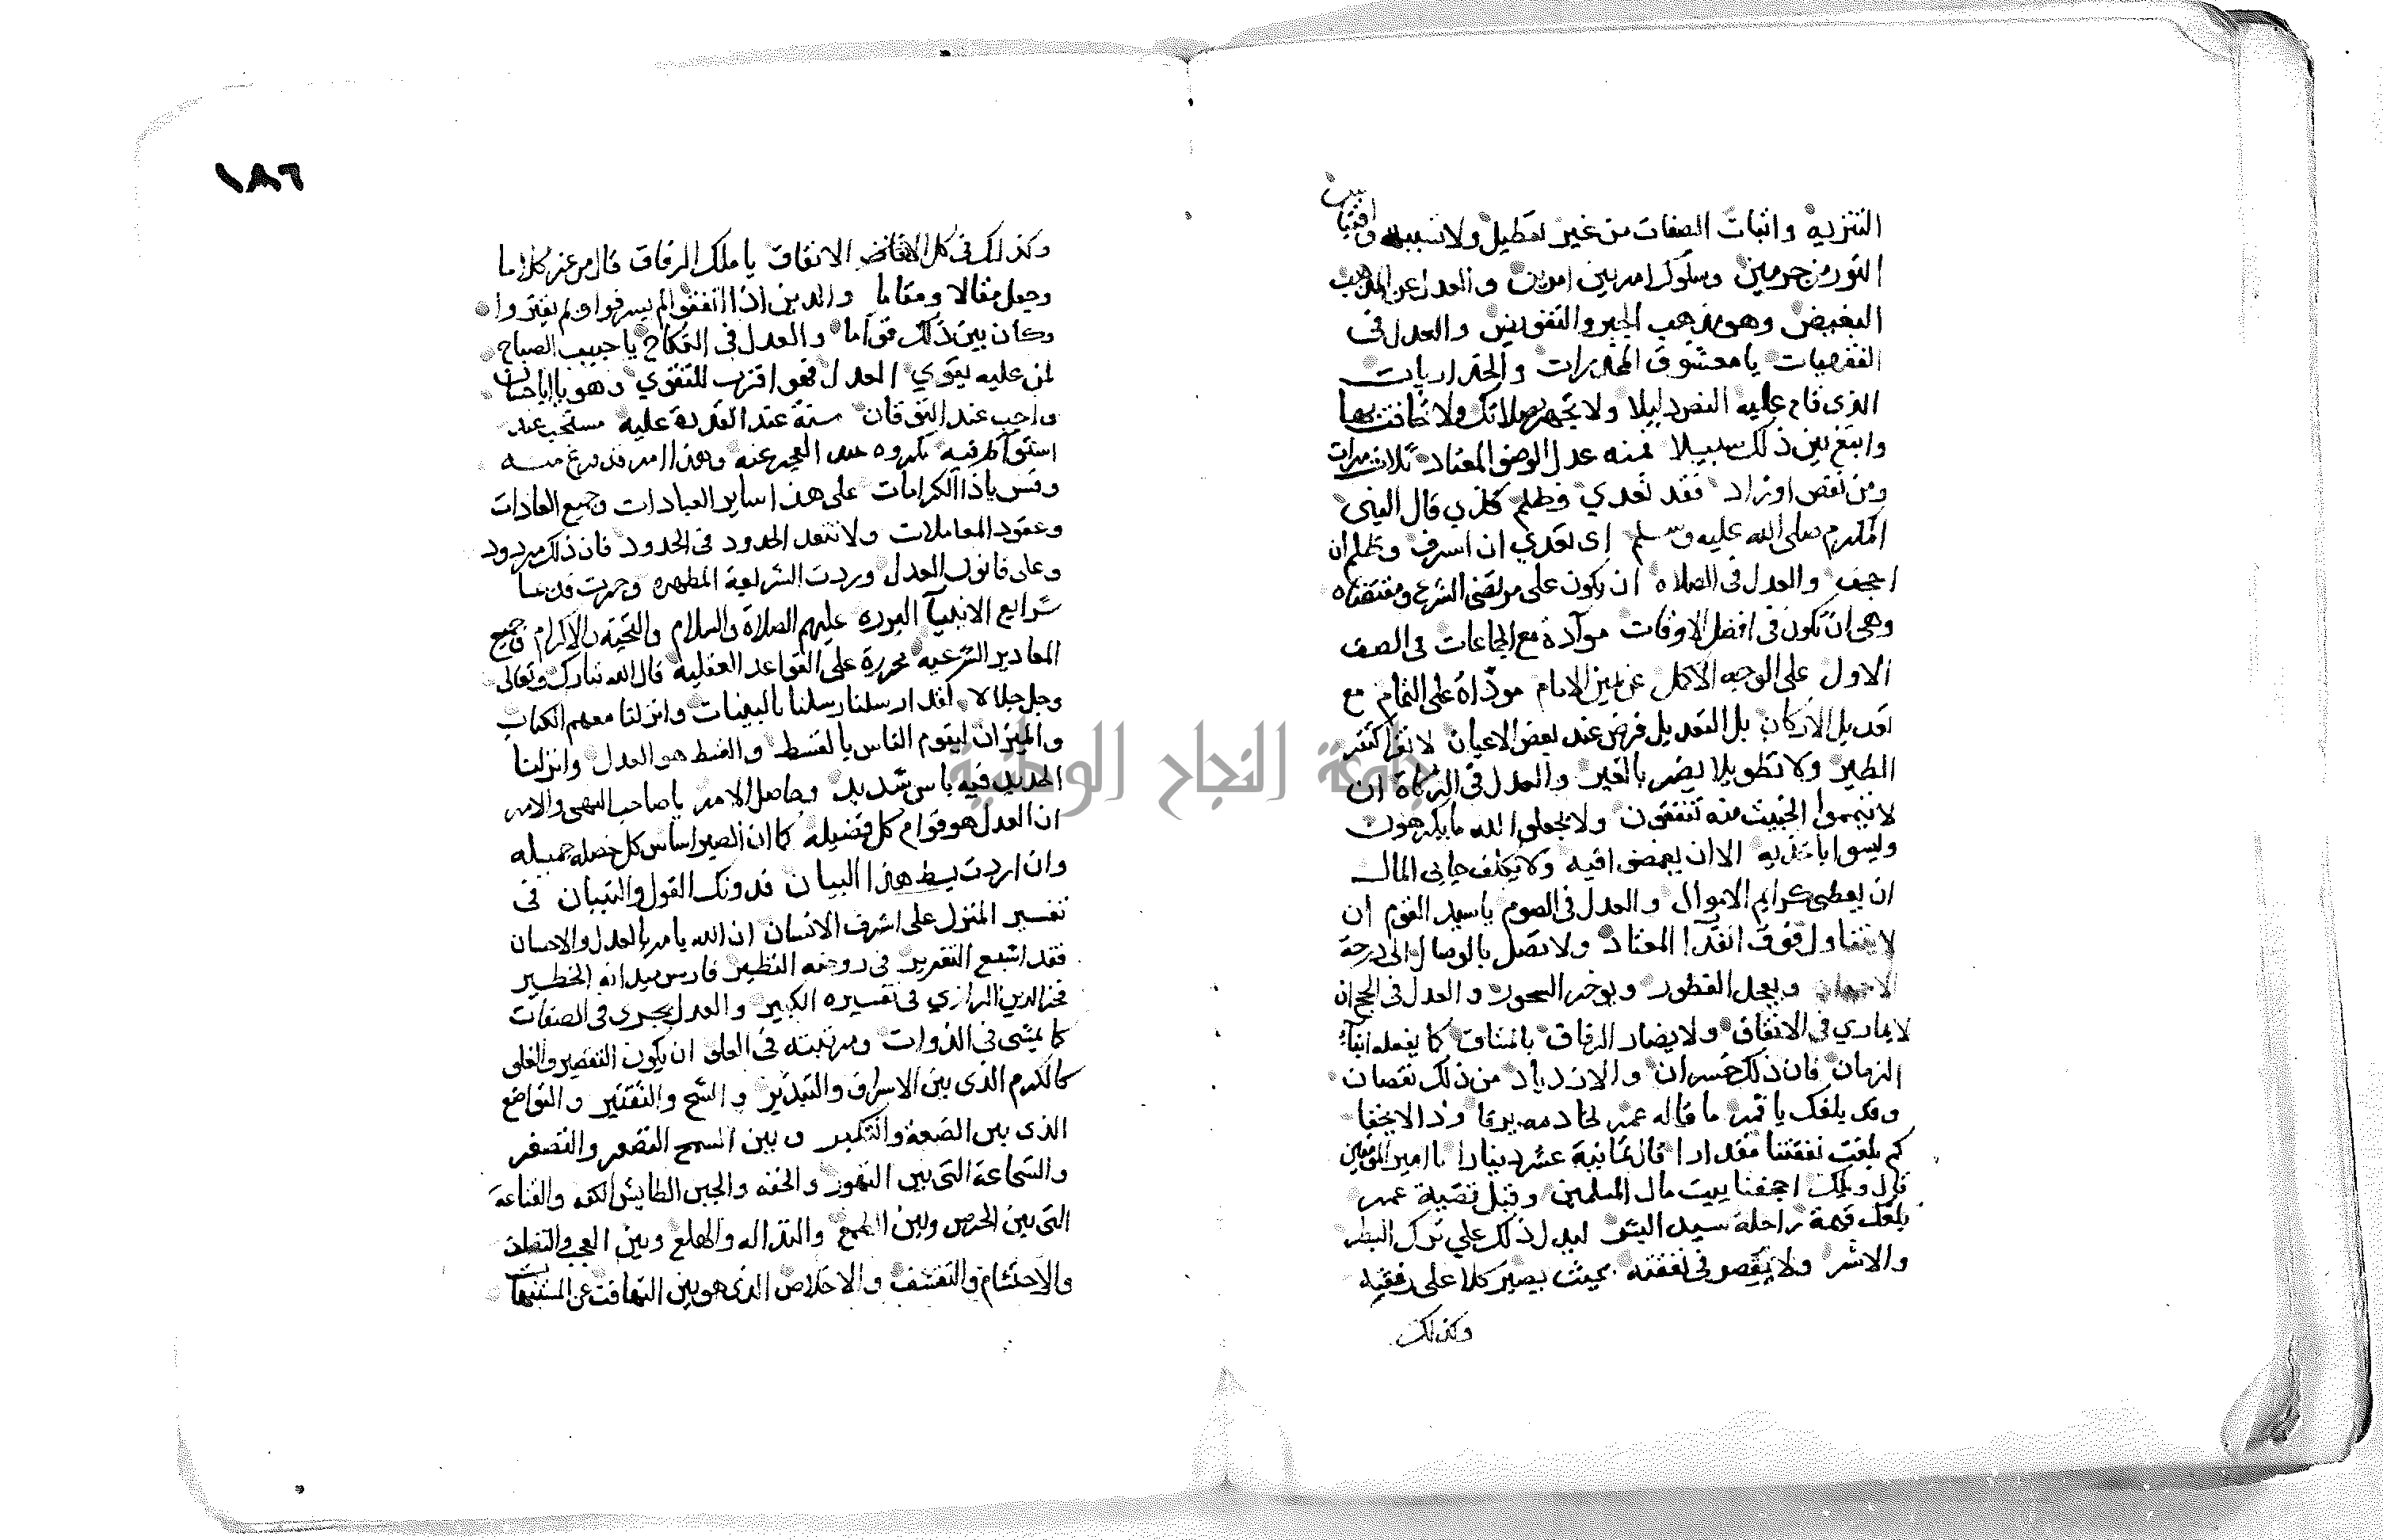 التنزيه واثبات الصفات من غير تعطيل ولا تشبيه واقتباس
النور من جرمين وسلوك امر بين امرين والعدل عن المذهب
البغيض وهو مذهب الجبر والتفويض والعدل في
الفقهيات يا معشوق المخدرات والجداريات
الذي قام عليه النص دليلا ولا تجهر بصلاتك ولا تخافت بها
وابتغ بين ذلك سبيلا فمنه عدل الوضو المعتاد ثلاث مرات
ومن نقص او زاد فقد تعدي وظلم كذي قال النبي
المكرم صلى الله عليه وسلم اي تعدي ان اسرف وظلم ان
اجحف والعدل في الصلاه ان يكون على مرتضى الشرع ومقتضاه
وهي ان تكون في افضل الاوقات مع الجماعات في الصف
الاول على الوجه الاكمل عن يمين الامام موداة على التمام مع
تعديل الاركان بل التعديل فرض عند بعض الاعيان لا نقرا كنقر
الطير ولا تطويلا يضر بالغير والعدل في الزكاة ان
لا تيمموا الخبيث منه تنفقون ولا تجعلوا لله ما يكرهون
وليسوا باخذيه الا ان يغمضوا فيه ولا يكلف جابي المال
ان يعطى كرايم الاموال والعدل في الصوم يا سيد القوم ان
لا يتناول فوق الغدا المعتاد ولا تصل بالوصال الى درجة
ويعجل الفطور ويوخر السحور والعدل في الحج ان
لا يماري في الانفاق ولا يضار الرفاق بالمشاق كما يفعله ابناء
الزمان فان ذلك خسران والازدياد من ذلك نقصان
وقد بلغك يا قمر ما قاله عمر لخادمه يرفا وذا لا يخفا
كم بلغت نفقتنا مقدارا قال ثمانية عشر دينارا يا امير المومنين
قال ويلك اجحفنا ببيت مال المسلمين وقبل قضية عمر
بلغك قيمة راحلة سيد البشر ليدل ذلك على ترك البطر
والاشر ولا يقصر في نفقته بحيث يصير كلا على رفقيه
وكذلك
١٨٦
وكذلك في كل الانفاق الانفاق يا ملك الرفاق قال من عز كلاما
وجعل مقالا ومقاما والذين اذا انفقوا لم يسرفوا ولم يقتروا
وكان بين ذلك قواما والعدل في النكاح يا حبيب الصباح
لمن عليه يقوي العدل فهو اقرب للتقوي وهو
واجب عند التوقان سنة عند القدرة عليه مستحب عند
استوا طرفيه مكروه عند العجز عنه وهذا امر قد فرغ منه
وقس يا ذا الكرامات على هذا ساير العبادات وجميع العادات
وعقود المعاملات ولا تتعد الحدود في الحدود فان ذلك مردود
وعلى قانون العدل وردت الشريعة المطهره وجرت قدما
شرايع الانبيآ البرره عليهم الصلاة والسلام والتحية والاكرام فجميع
المقادير الشرعيه محررة على القواعد العقلية قال الله تبارك وتعالى
وجل جلاله لقد ارسلنا رسلنا بالبينات وانزلنا معهم الكتاب
والميزان ليقوم الناس بالقسط والقسط هو العدل وانزلنا
الحديد فيه باس شديد وحاصل الامر يا صاحب النهى والامر
ان العدل هو قوام كل فضيله كما ان الصبر اساس كل خصله جميله
وان اردت بسط هذا البيان فدونك القول والتبيان في
تفسير المنزل على اشرف الانسان ان الله يامر بالعدل والاحسان
فقد اشبع التقرير في روضه النظير فارس ميدانه الخطير
فخر الدين الرازي في تفسيره الكبير والعدل يجري في الصفات
كما يمشى في الذوات ومرتبته في العلو ان يكون التقصير والغلو
كالكرم الذي بين الاسراف والتبذير والشح والتقتير والتواضع
الذي بين الضعة والتكبر وبين السمح التصعر والتصغر
والشجاعة التي بين التهور والخفه والجبن الطايش الكفه والقناعة
التي بين الحرص وبين الطمع والنذاله والهلع وبين العجب
والاحتشام والتقشف والاخلاص الذي هو بين التهافت عن